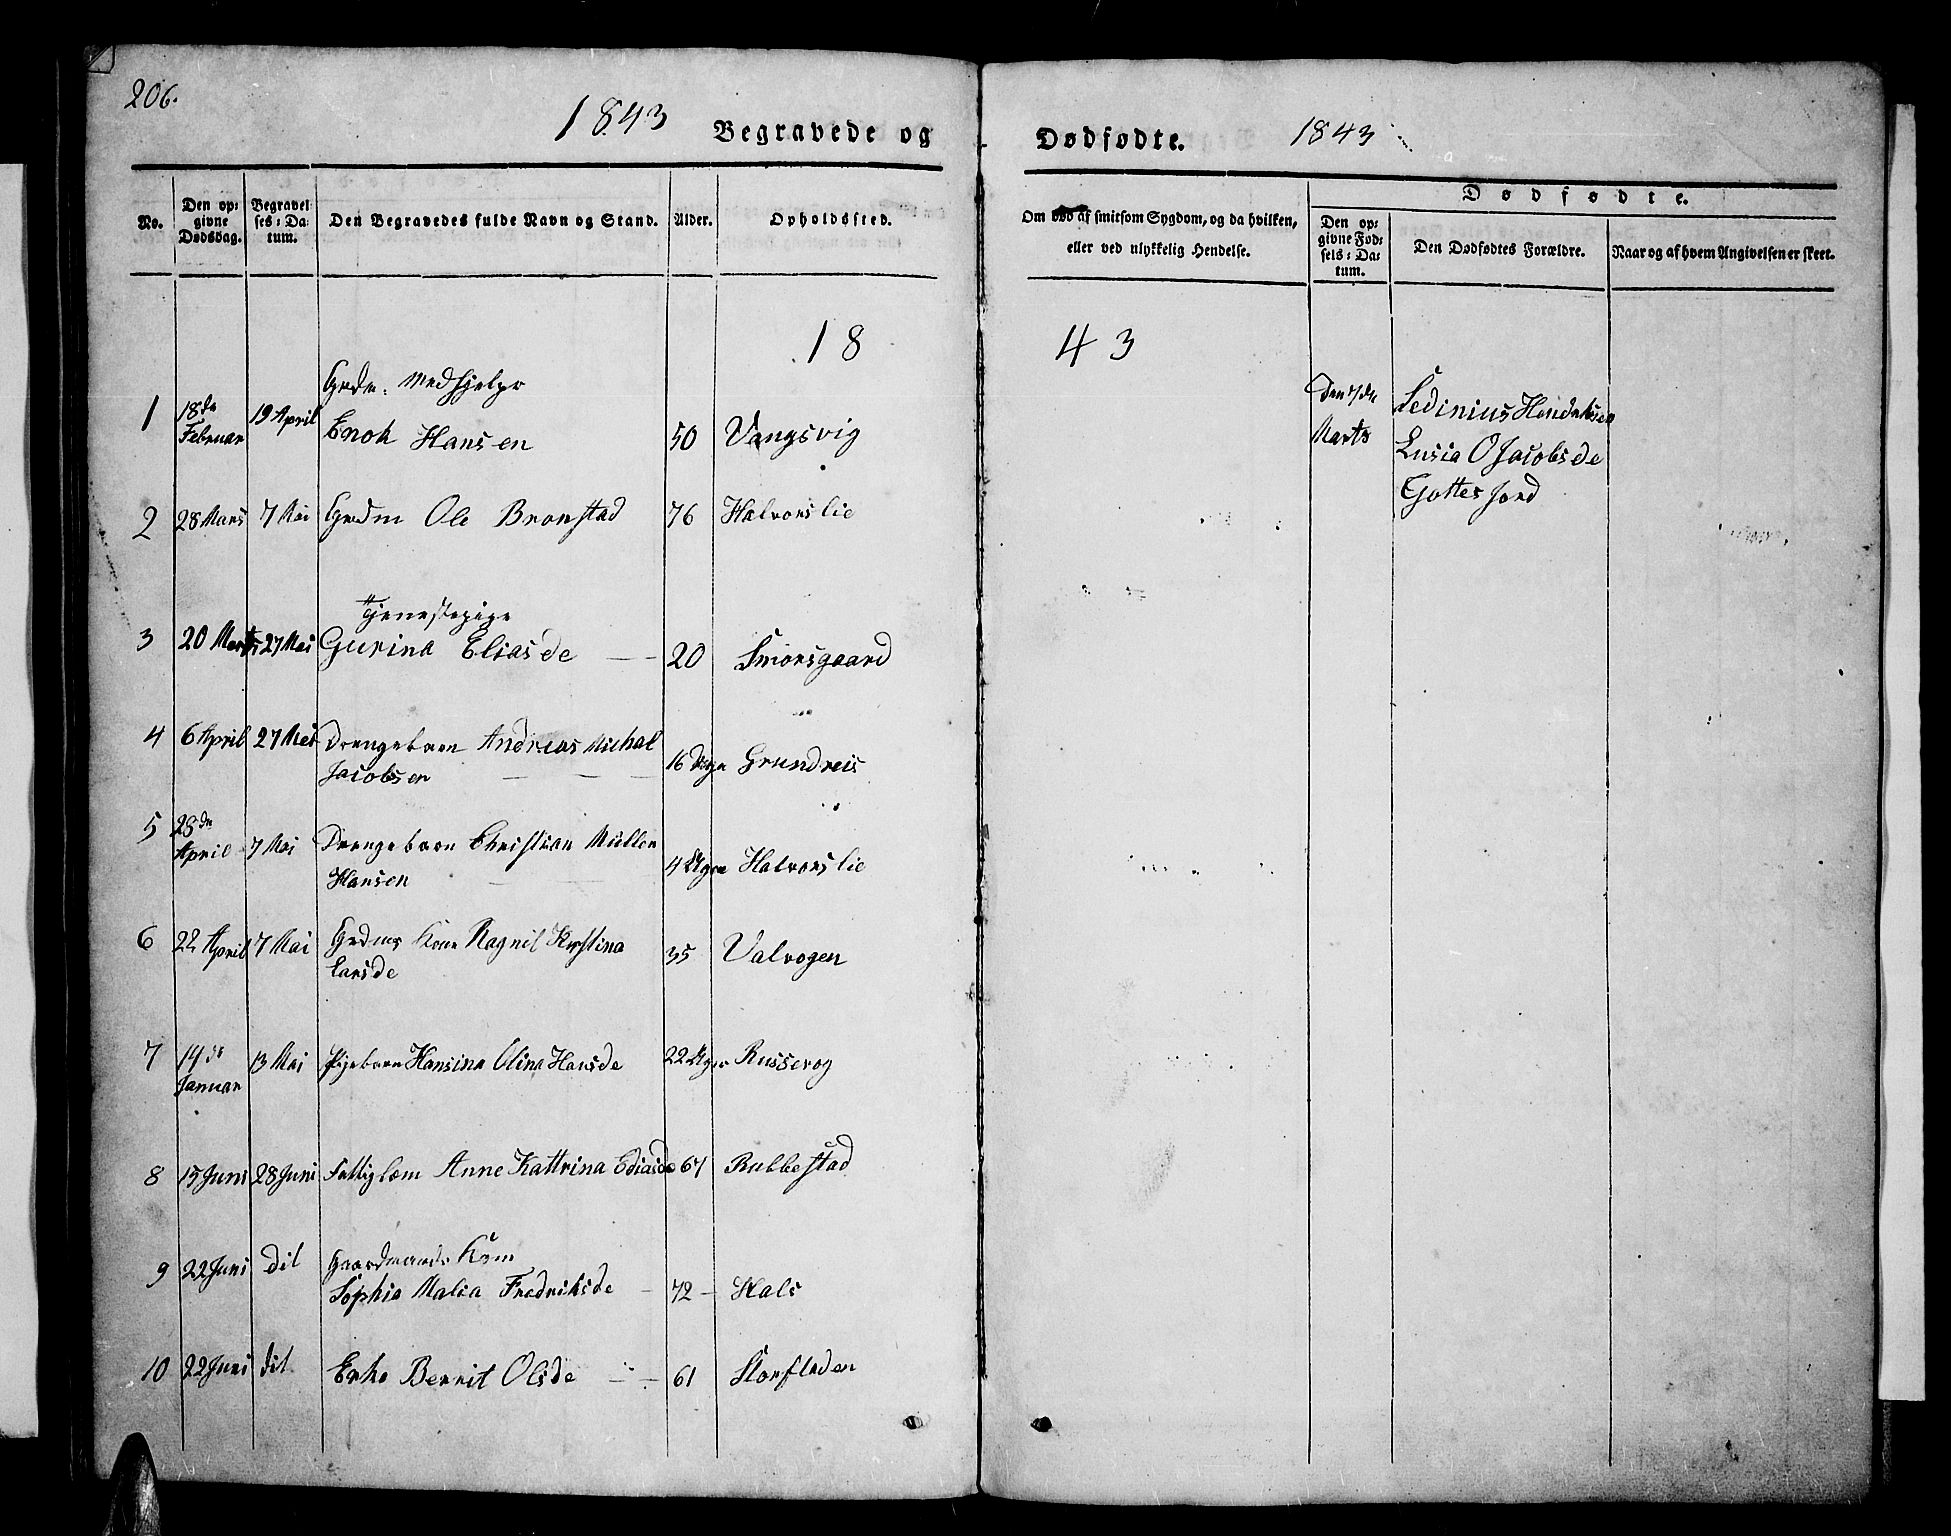 206.
1843 Begravede og
No. Den opgivne Dødsdag. Begravelses-Datum. Den Begravedes fulde Navn og Stand. Alder. Opholdssted.
18
1 18de Februar 19 April Grdm. Medhjelper
Enok Hansen 50 Vangsvig
2 28 Mars 7 Mai Grdm Ole Bronstad 76 Halvorslie
3 20 Marts 27 Mai Tjenestepige
Gurina Eliasde 20 Smorsgaard
4 6 April 27 Mai Drengebarn Andreas Michal
Jacobsen 16 Grundreis
5 28de April 7 Mai Drengebarn Christian Müller
Hansen 4 Uger Halvorslie
6 22 April 7 Mai Grdms Kone Ragnil Kristina
Larsde 35 Valvogen
7 14de Januar 13 Mai Pigebarn Hansina Olina Hansde 22 Uger Russevog
8 15 Juni 28 Juni Fattiglem Anne Kattrina Ediasde 67 Rubbestad
9 22 Juni dit Gaardmands Kone
Sophia Malia Fredriksde 72 Hals
10 22 Juni dit Enke Berrit Olsde 61 Storsladen
Dødfødte. 1843
Om død af smitsom Sygdom, og da hvilken, eller ved ulykkelig Hendelse. Dødfødte.
Den opgivne Fødsels-Datum. Den Dødfødtes Forældre. Naar og af hvem Angivelsen er skeet.
43
Den 7de Marts Sedinius
Lusia O Jacobsde
Gottesjord